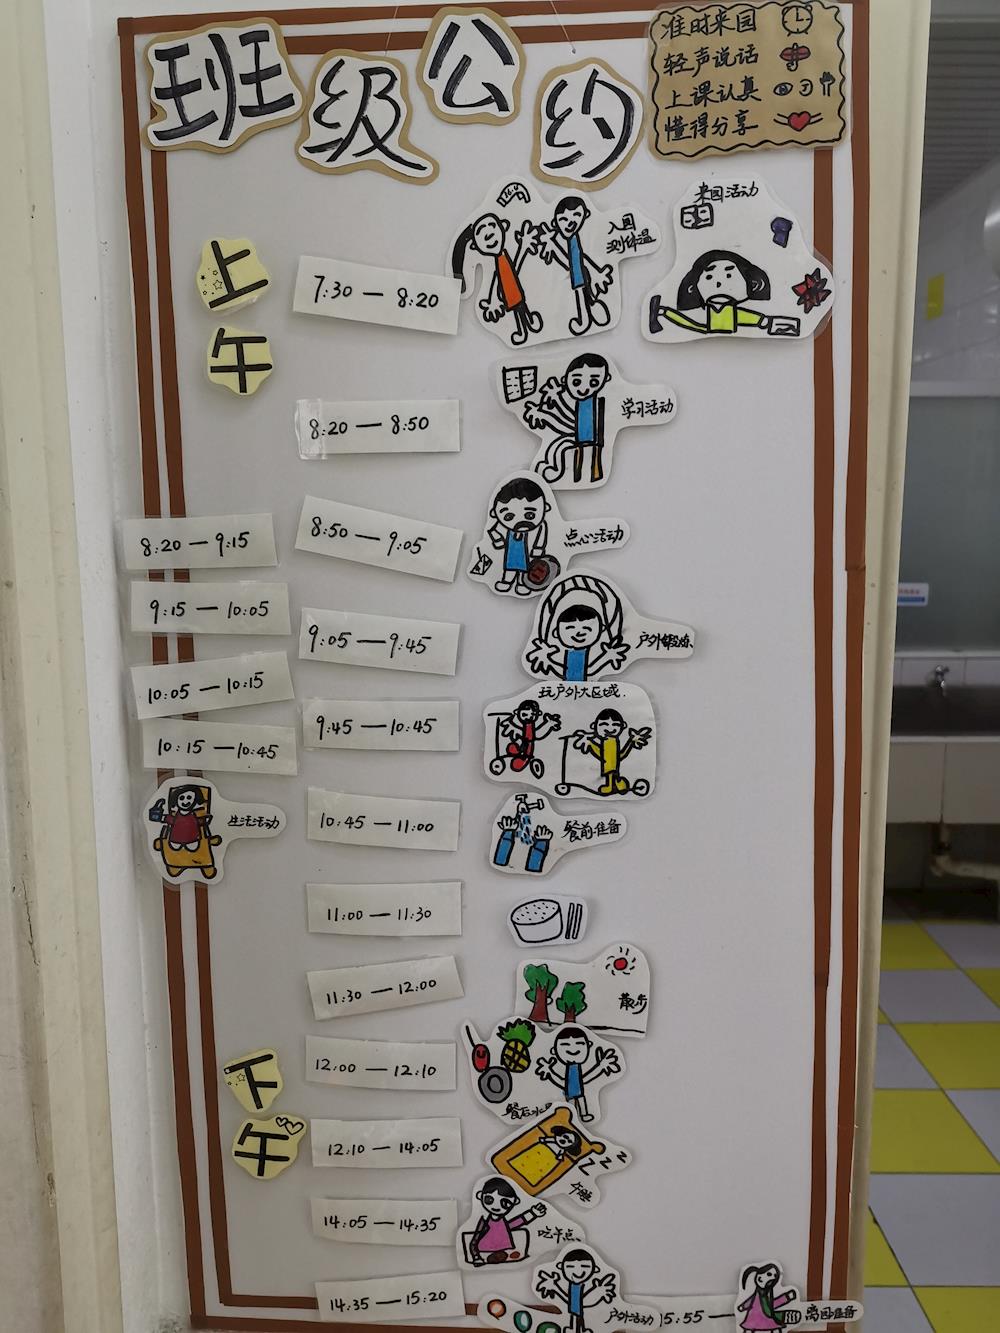 班级公约
准时来园
轻声说话
上课认真
懂得分享
上午
7:30 — 8:20
入园
测体温
来园活动
8:20 — 8:50
学习活动
8:50 — 9:05
点心活动
8:20 — 9:15
9:15 — 10:05
9:05 — 9:45
户外锻炼
10:05 — 10:15
9:45 — 10:45
玩户外大区域
10:15 — 10:45
生活活动
10:45 — 11:00
餐前准备
11:00 — 11:30
11:30 — 12:00
散步
下午
12:00 — 12:10
餐后水
12:10 — 14:05
午睡
14:05 — 14:35
吃午点
14:35 — 15:20
户外活动
15:55 —
离园准备